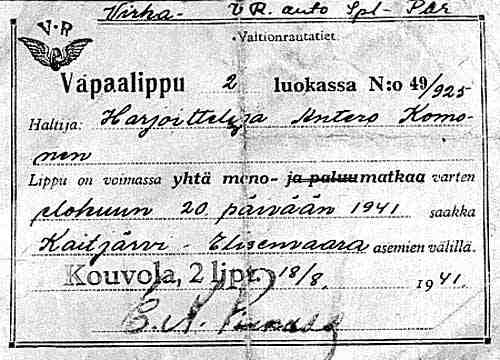 Virka- V.R. auto Spl- Pär
V·R
·Valtionrautatiet.
Vapaalippu 2 luokassa N:o 49/925
Haltija: Harjoittelija Antero Komo-
nen
Lippu on voimassa yhtä meno- ja paluumatkaa varten
elokuun 20 päivään 1941 saakka
Kaitjärvi - Elisenvaara asemien välillä.
Kouvola, 2 lipt. 18/8. 1941.